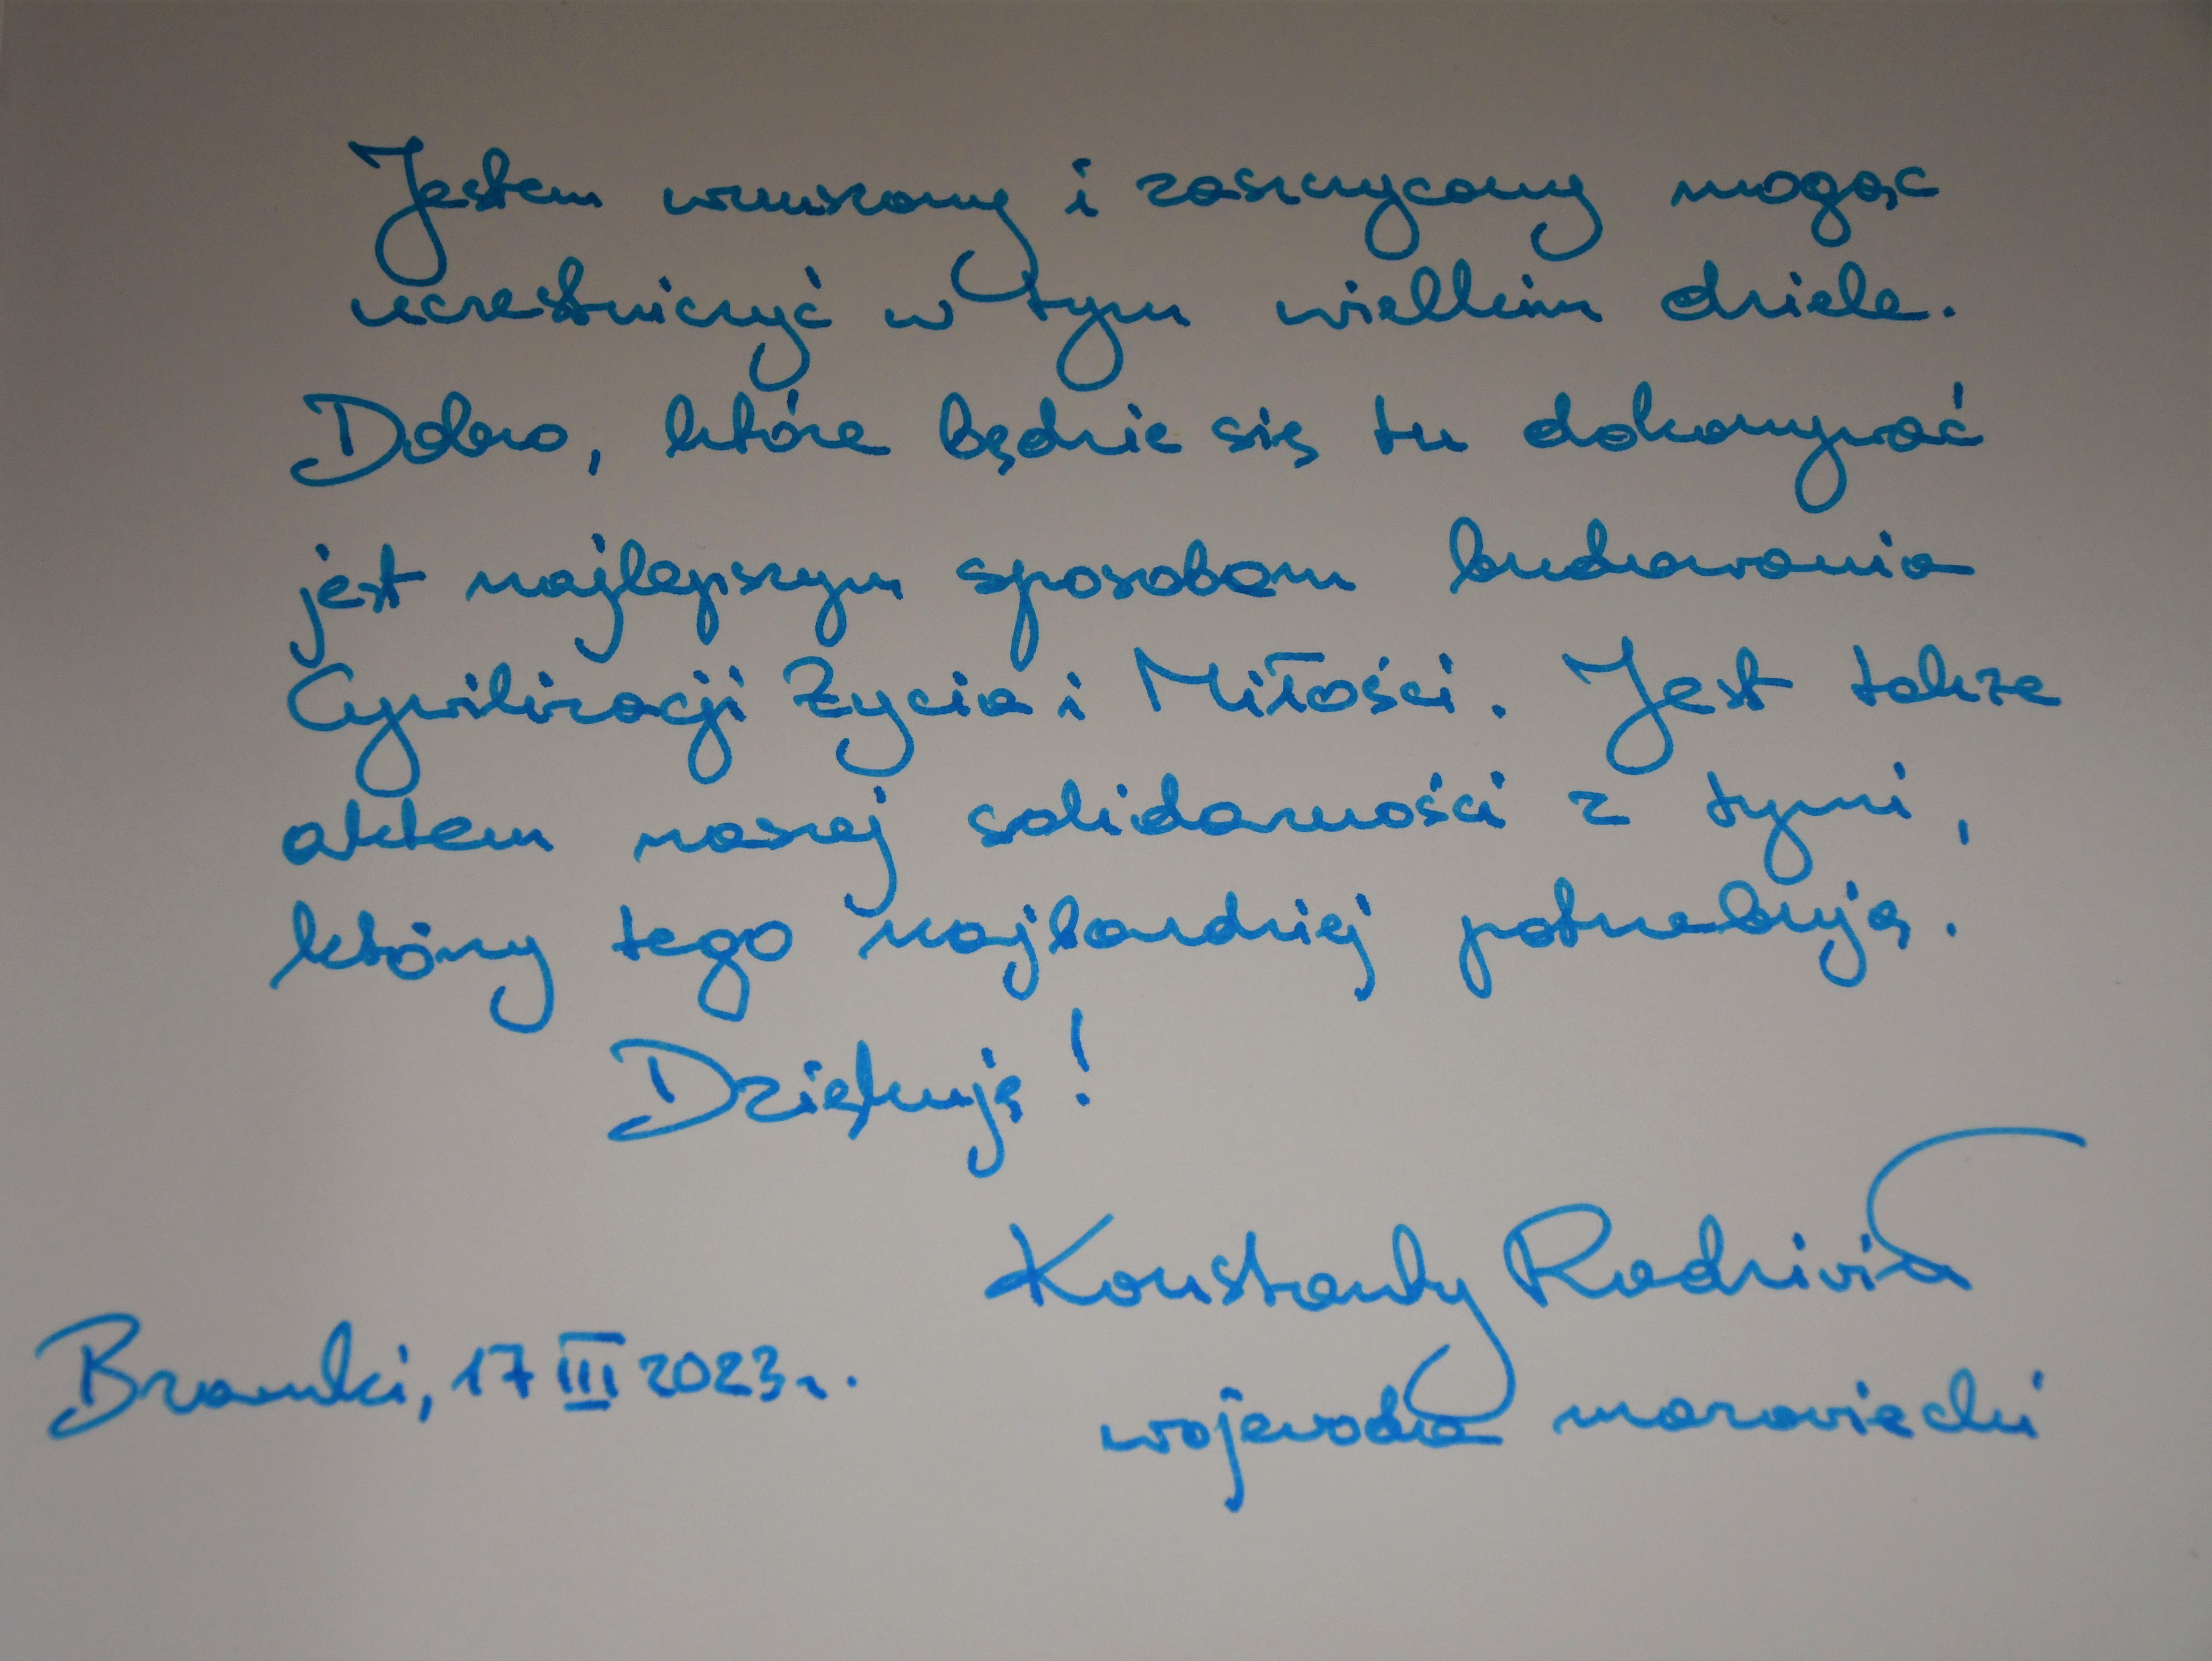 Jestem wzruszony i zaszczycony mogąc
uczestniczyć w tym wielkim dziele.
Dobro, które będzie się tu dokonywać
jest najlepszym sposobem budowania
Cywilizacji Życia i Miłości. Jest także
aktem naszej solidarności z tymi,
którzy tego najbardziej potrzebują.
Dziękuję!
Konstanty Radziwiłł
Bramki, 17 III 2023 r.
wojewoda mazowiecki